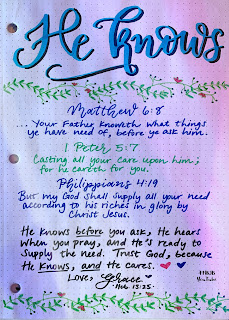 He knows
Matthew 6:8
... Your Father knoweth what things
ye have need of, before ye ask him.
1 Peter 5:7
Casting all your care upon him;
for he careth for you.
Philippians 4:19
But my God shall supply all your need
according to his riches in glory by
Christ Jesus.
He knows before you ask, He hears
when you pray, and He's ready to
supply the need. Trust God, because
He knows, and He cares.
Love,
13:25